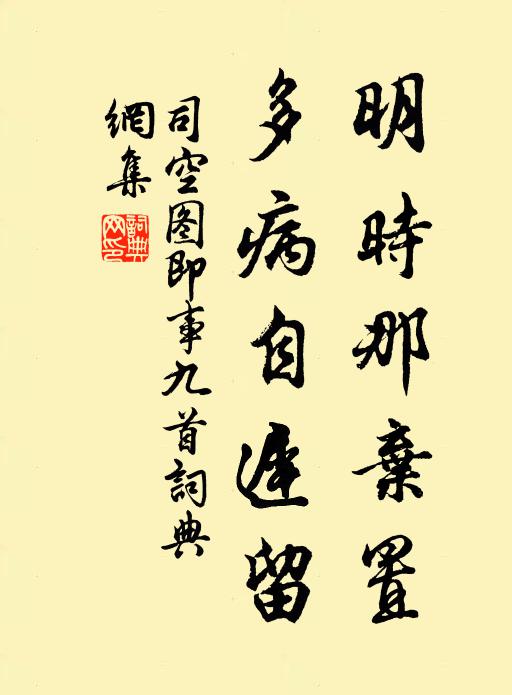 明時那棄置
多病自遲留
司空图即事九首詞典
網集
詞典網印